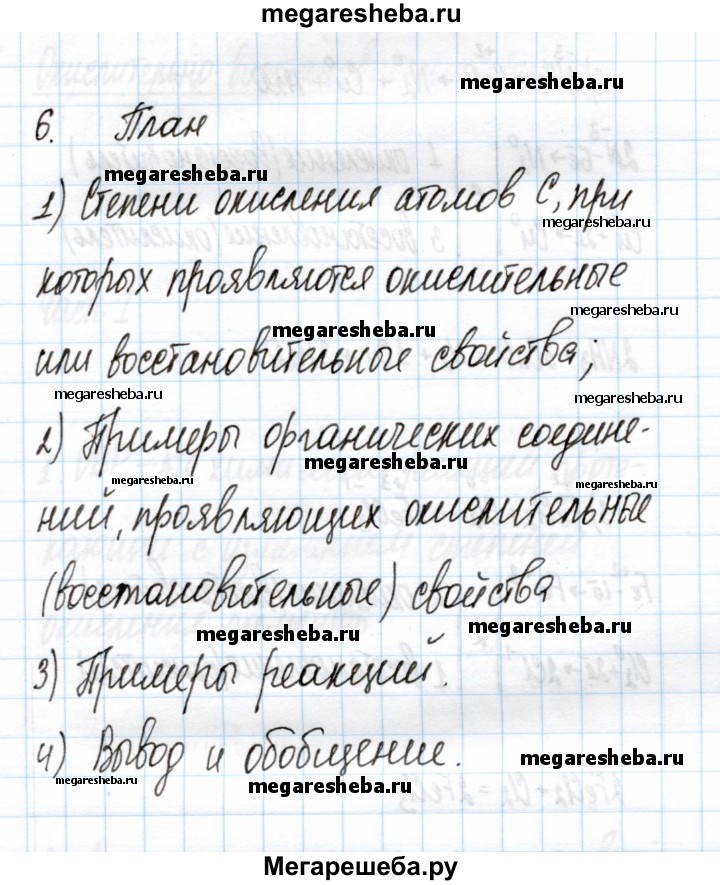 megaresheba.ru
megaresheba.ru
6. План
megaresheba.ru
1) Степени окисления атомов С, при
megaresheba.ru
которых проявляются окислительные
megaresheba.ru
megaresheba.ru
или восстановительные свойства;
megaresheba.ru
megaresheba.ru
2) Примеры органических соедине-
megaresheba.ru
megaresheba.ru
megaresheba.ru
ний, проявляющих окислительные
(восстановительные) свойства
megaresheba.ru
megaresheba.ru
3) Примеры реакций.
4) Вывод и обобщение.
megaresheba.ru
megaresheba.ru
megaresheba.ru
Мегарешеба.ру